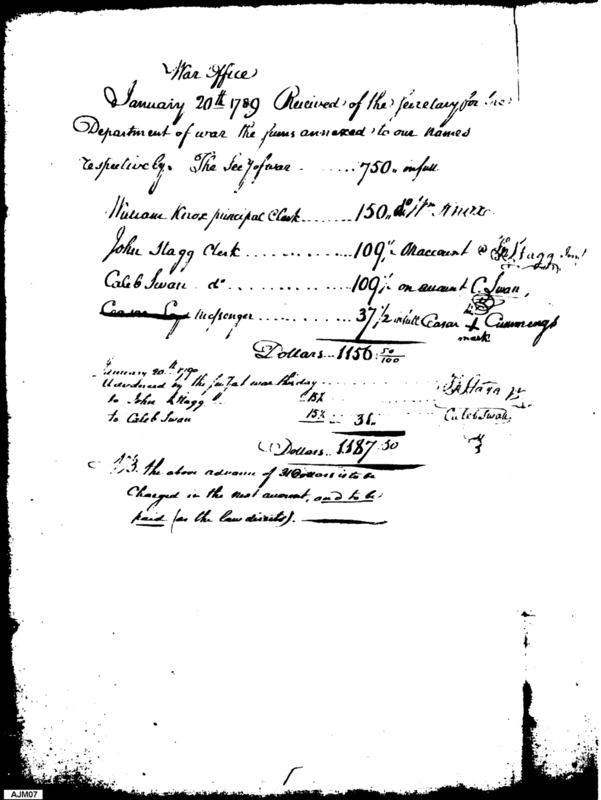 War Office
January 20th 1789 Received of the Secretary for the
Department of war the sums annexed to our names
respectively. The Secy of war ...... 750,, in full
William Knox principal Clerk ....... 150,, do Wm Knox
John Stagg Clerk ............ 109 1/2 On account Jn Stagg Junr
Caleb Swan do ............ 109 1/2 on account C. Swan,
Messenger ........... 37 1/2 in full Ceasar + Cummings
his
mark
Dollars .. 1156 50/100
January 20th 1790
Advanced by the Secy at war this day
to John Stagg 15 1/2 Jn Stagg Jr
to Caleb Swan 15 1/2 .. 31.. Caleb Swan
Dollars .. 1187.50
N.B. the above advance of 31 Dollars is to be
Charged in the next account, and to be
paid (as the law directs).
AJM07